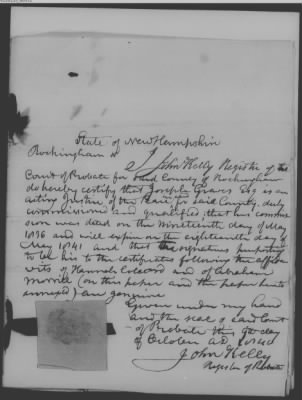 State of New Hampshire
Rockingham ss
I John Kelly Register of the
Court of Probate for said County of Rockingham
do hereby certify that Joseph Graves Esq is an
acting Justice of the Peace for said County, duly
commissioned and qualified; that his commis
sion was dated on the nineteenth day of May
1836 and will expire on the eighteenth day of
May 1841 and that the signatures purporting
to be his to the certificates following the affida
vits of Hannah and of Abraham
Morrill (on this paper and the paper hereto
annexed) are genuine
Given under my hand
and the seal of said Court
of Probate this day
of October AD
John Kelly
Register of Probate